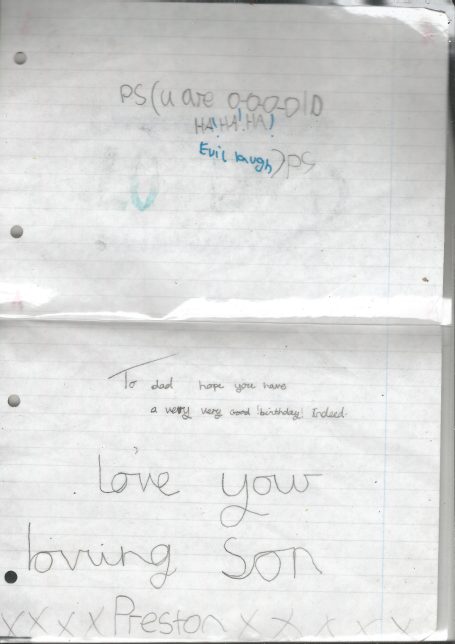 PS(u are o-o-o-o l D
HA! HA! HA!
Evil laugh)PS
To dad hope you have
a very very good birthday! Indeed.
love your
loving Son
X X X X Preston X X X X X